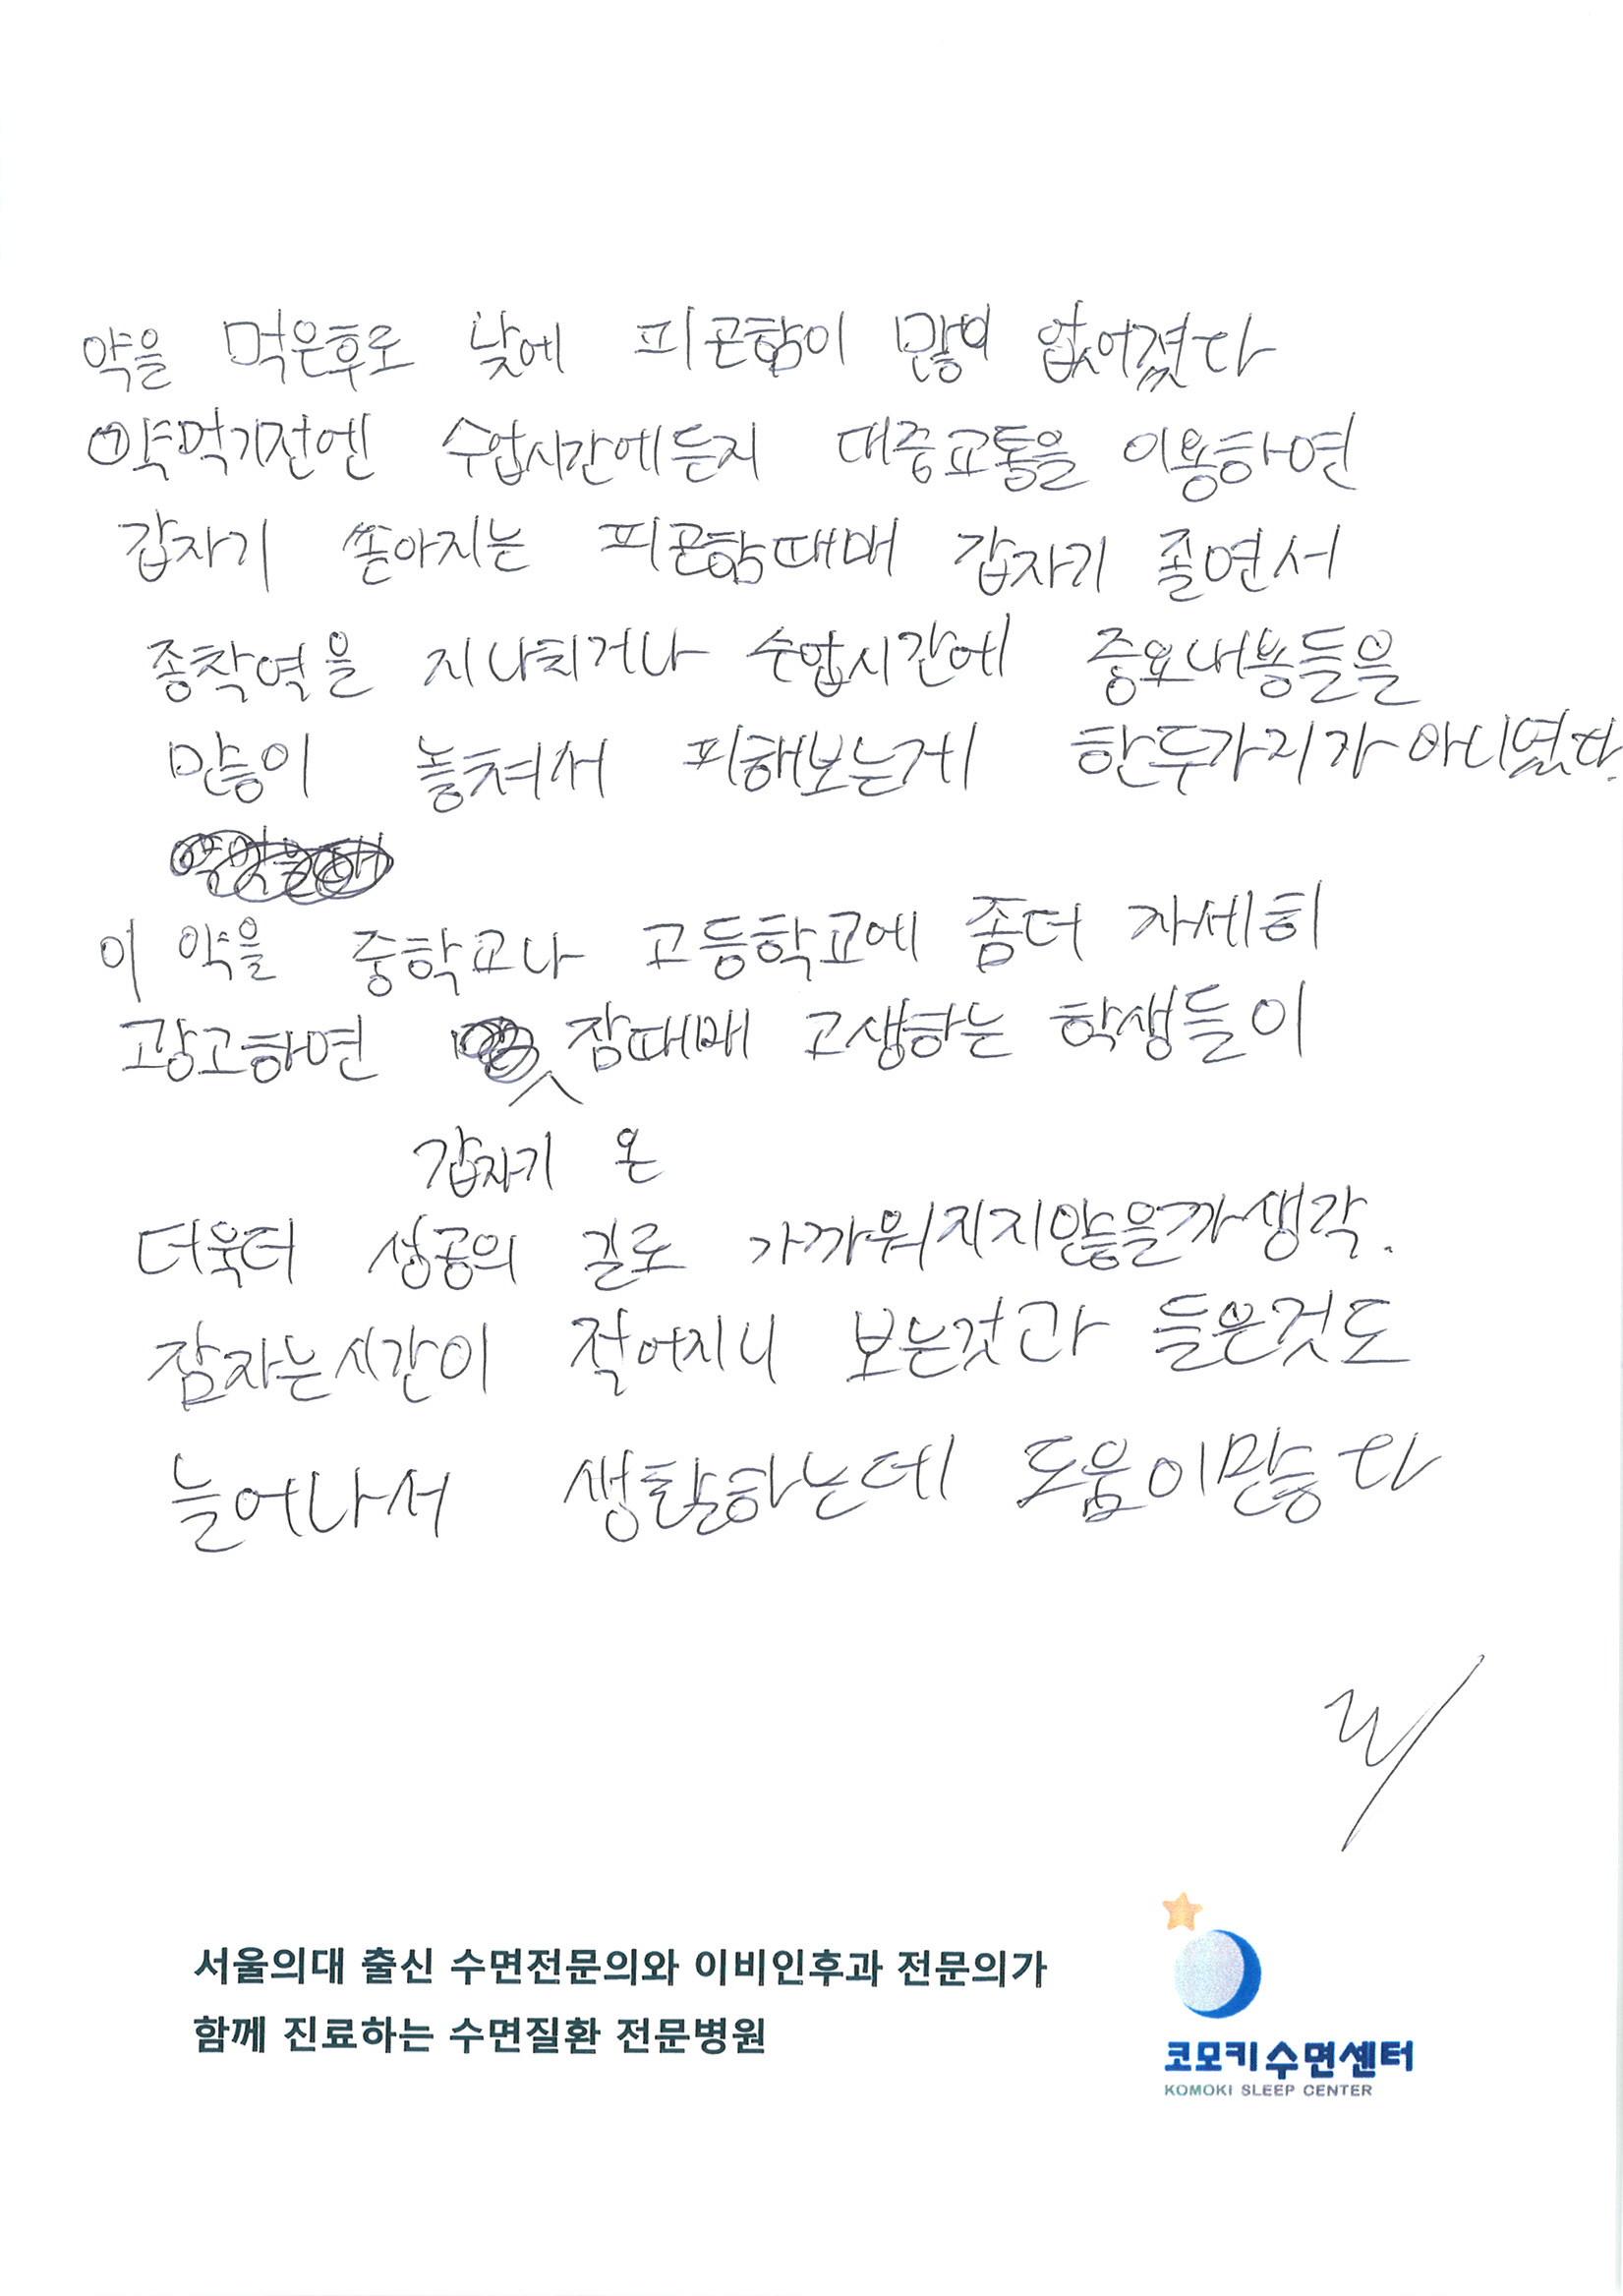 약을 먹은후로 낮에 피곤함이 많이 없어졌다
약먹기전엔 수업시간에든지 대중교통을 이용하면
갑자기 쏟아지는 피곤함때매 갑자기 졸면서
종착역을 지나치거나 수업시간에 중요내용들을
많이 놓쳐서 피해보는게 한두가지가 아니였다.
이 약을 중학교나 고등학교에 좀더 자세히
광고하면 잠때매 고생하는 학생들이
갑자기 온
더욱더 성공의 길로 가까워지지않을까생각.
잠자는시간이 적어지니 보는것과 들은것도
늘어나서 생활하는데 도움이많다
서울의대 출신 수면전문의와 이비인후과 전문의가
함께 진료하는 수면질환 전문병원
코모키수면센터
KOMOKI SLEEP CENTER